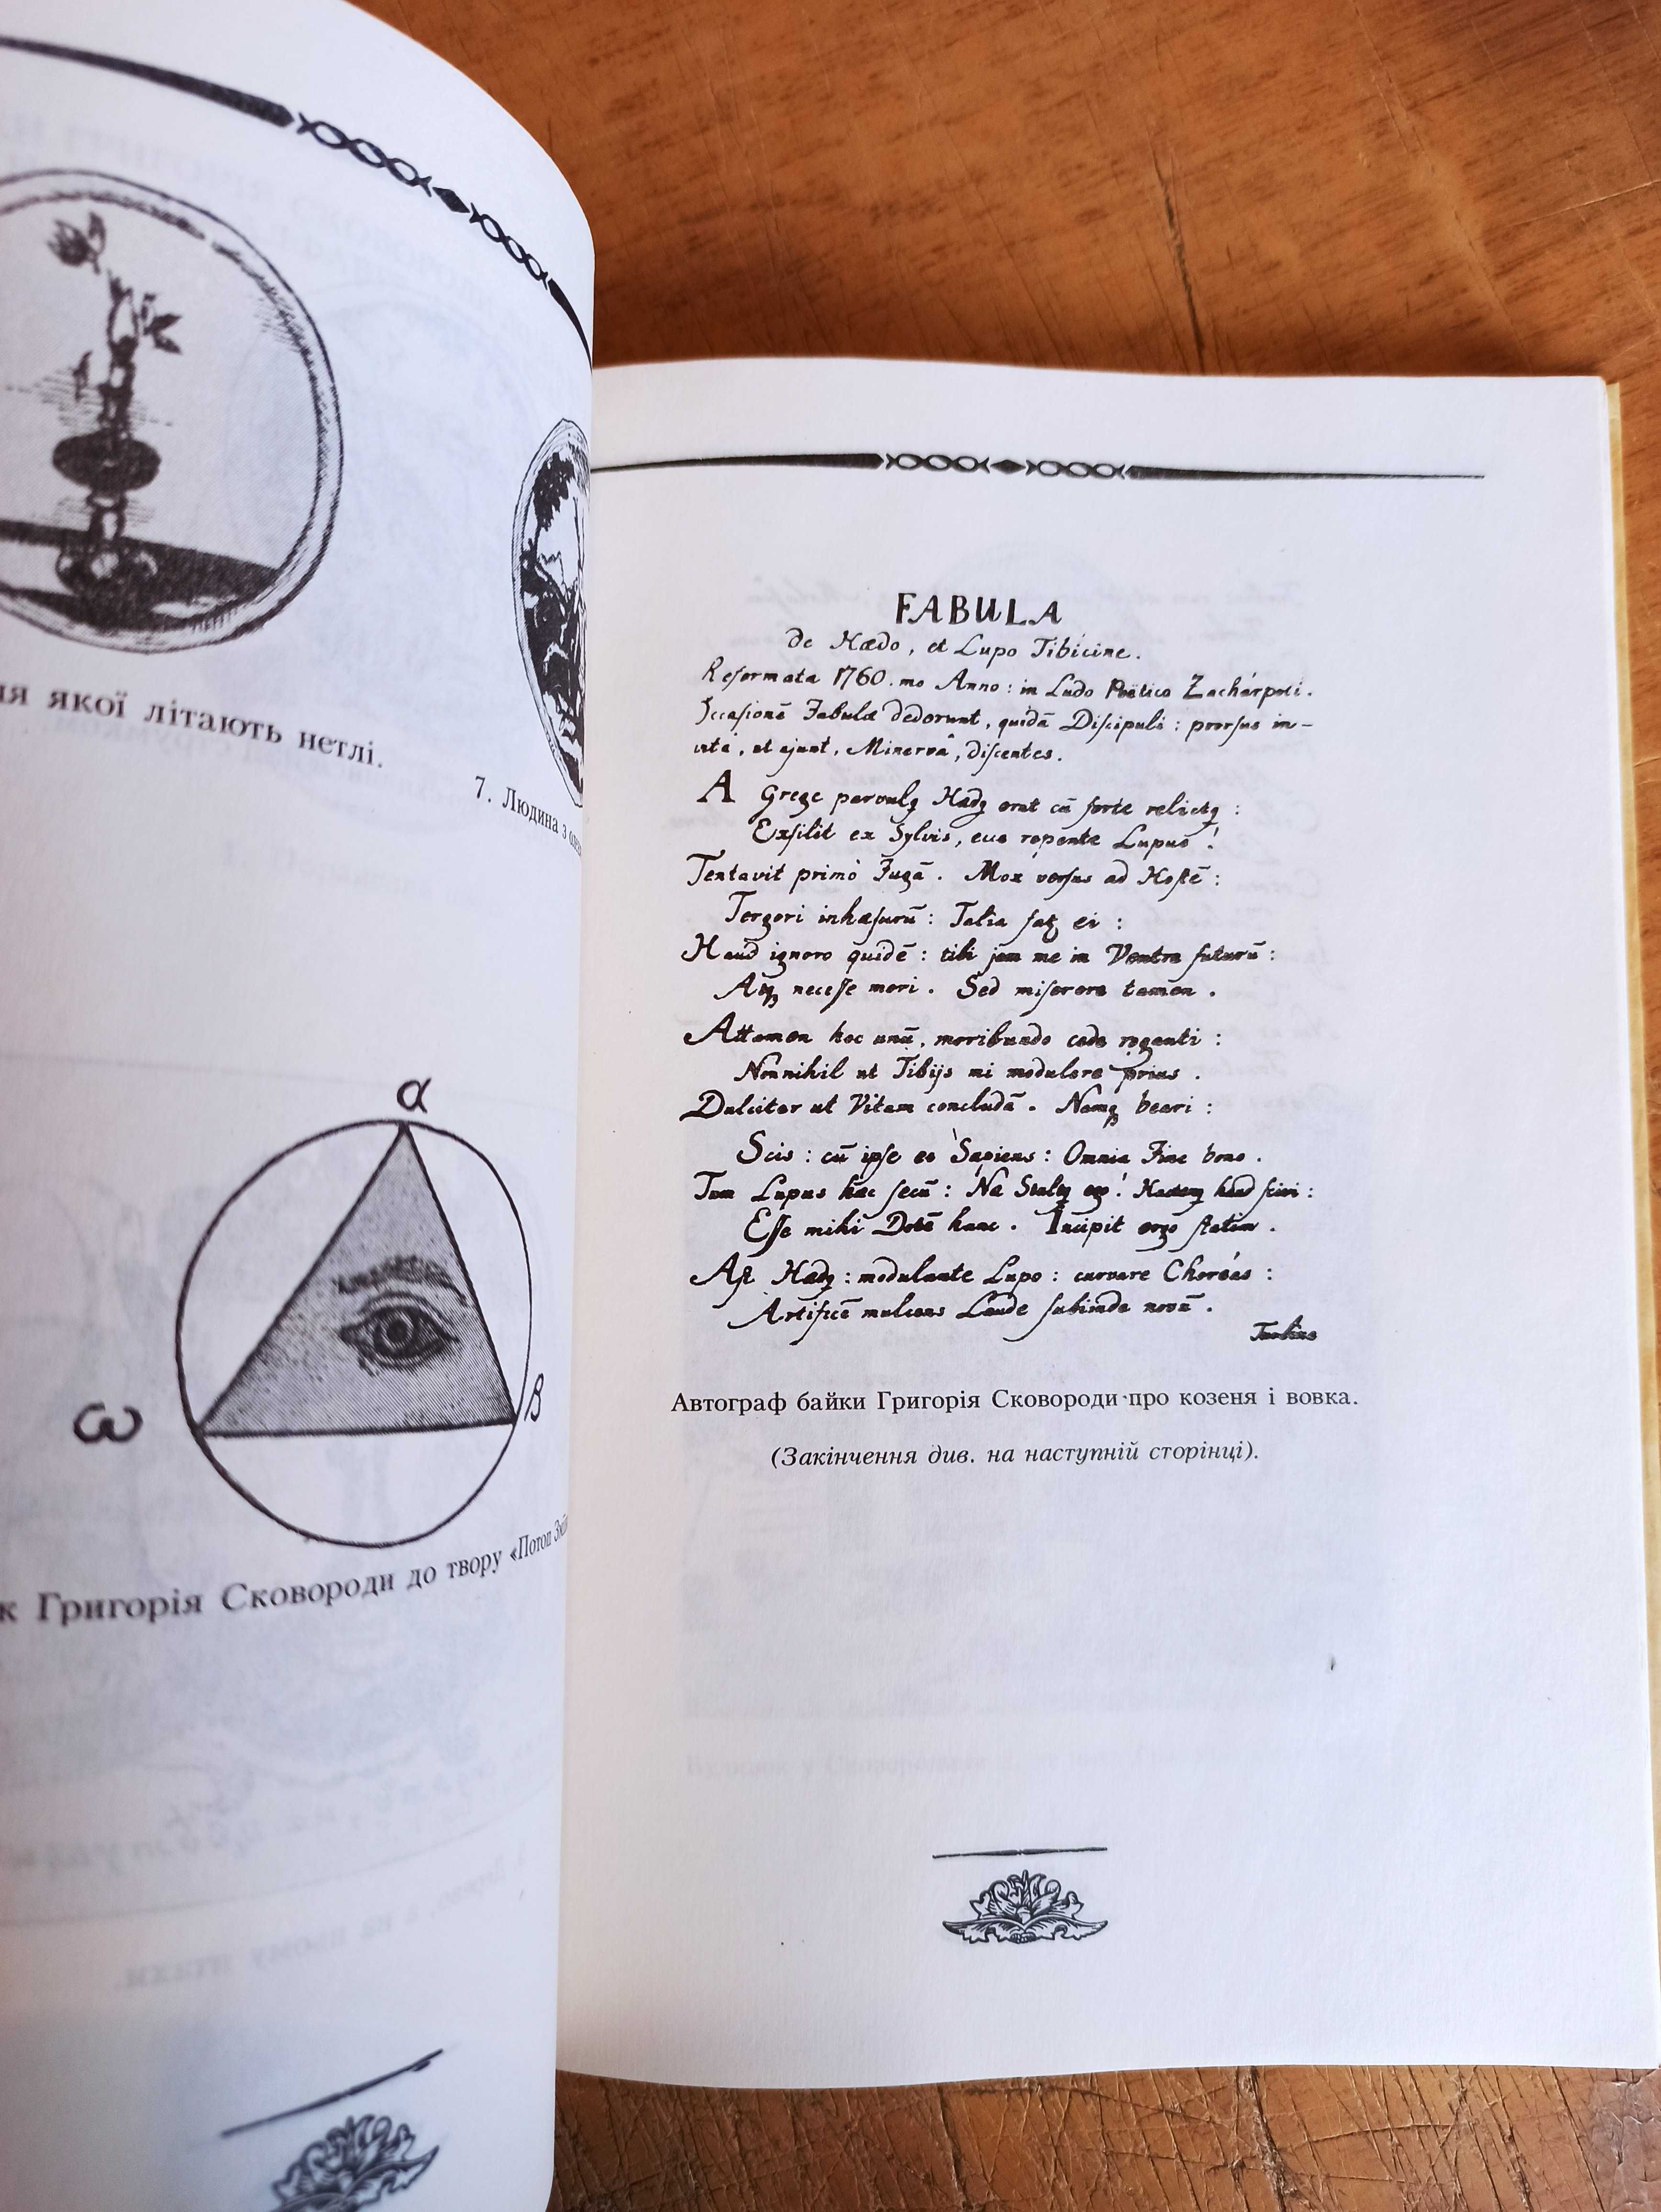 ля якої літають нетлі.
7. Людина з
α
ω
β
к Григорія Сковороди до твору «Потоп
FABULA
de Hædo, et Lupo Tibicine.
Reformata 1760.mo Anno: in Ludo Poëtico Zachárpoli.
Occasionē Fabulæ dedorunt, quidā Discipuli: prorsus in-
vitâ, ut ajunt, Minervâ, discentes.
A Grege parvulꝯ Hædꝯ erat cū forte relictꝯ:
Exsilit ex Sylvis, ecce repente Lupus!
Tentavit primò Fugā. Mox versus ad Hostē:
Tergori inhæsurū: Talia fatꝯ ei:
Haud ignoro quidē: tibi jam me in Ventre futurū:
Atqꝫ necesse mori. Sed miserere tamen.
Attamen hoc unū, moribundo cede roganti:
Nonnihil ut Tibijs mi modulere prius.
Dulciter ut Vitam concludā. Namqꝫ beari:
Scis: cū ipse es Sapiens: Omnia Fine bono.
Tum Lupus hæc secū: Næ Stultꝯ ego! Hactenꝯ haud scivi:
Esse mihi Dotē hanc. Incipit ergo statim.
Ast Hædꝯ: modulante Lupo: curvare Choréas:
Artificē mulcens Laude subinde novā.
Автограф байки Григорія Сковороди про козеня і вовка.
(Закінчення див. на наступній сторінці).